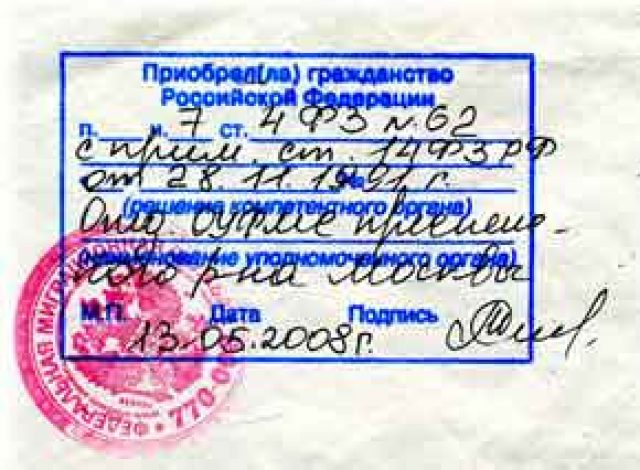 Приобрел(ла) гражданство
Российской Федерации
п. ч. 7 ст. 4 ФЗ №62
с прим. ст. 14 ФЗ РФ
от 28.11.1991 г.
(решение компетентного органа)
Отд. ОУФМС
(наименование уполномоченного органа)
р-на Москвы
М.П. Дата Подпись
13.05.2008г.
ФЕДЕРАЛЬНАЯ МИГРАЦИОННАЯ
770-0